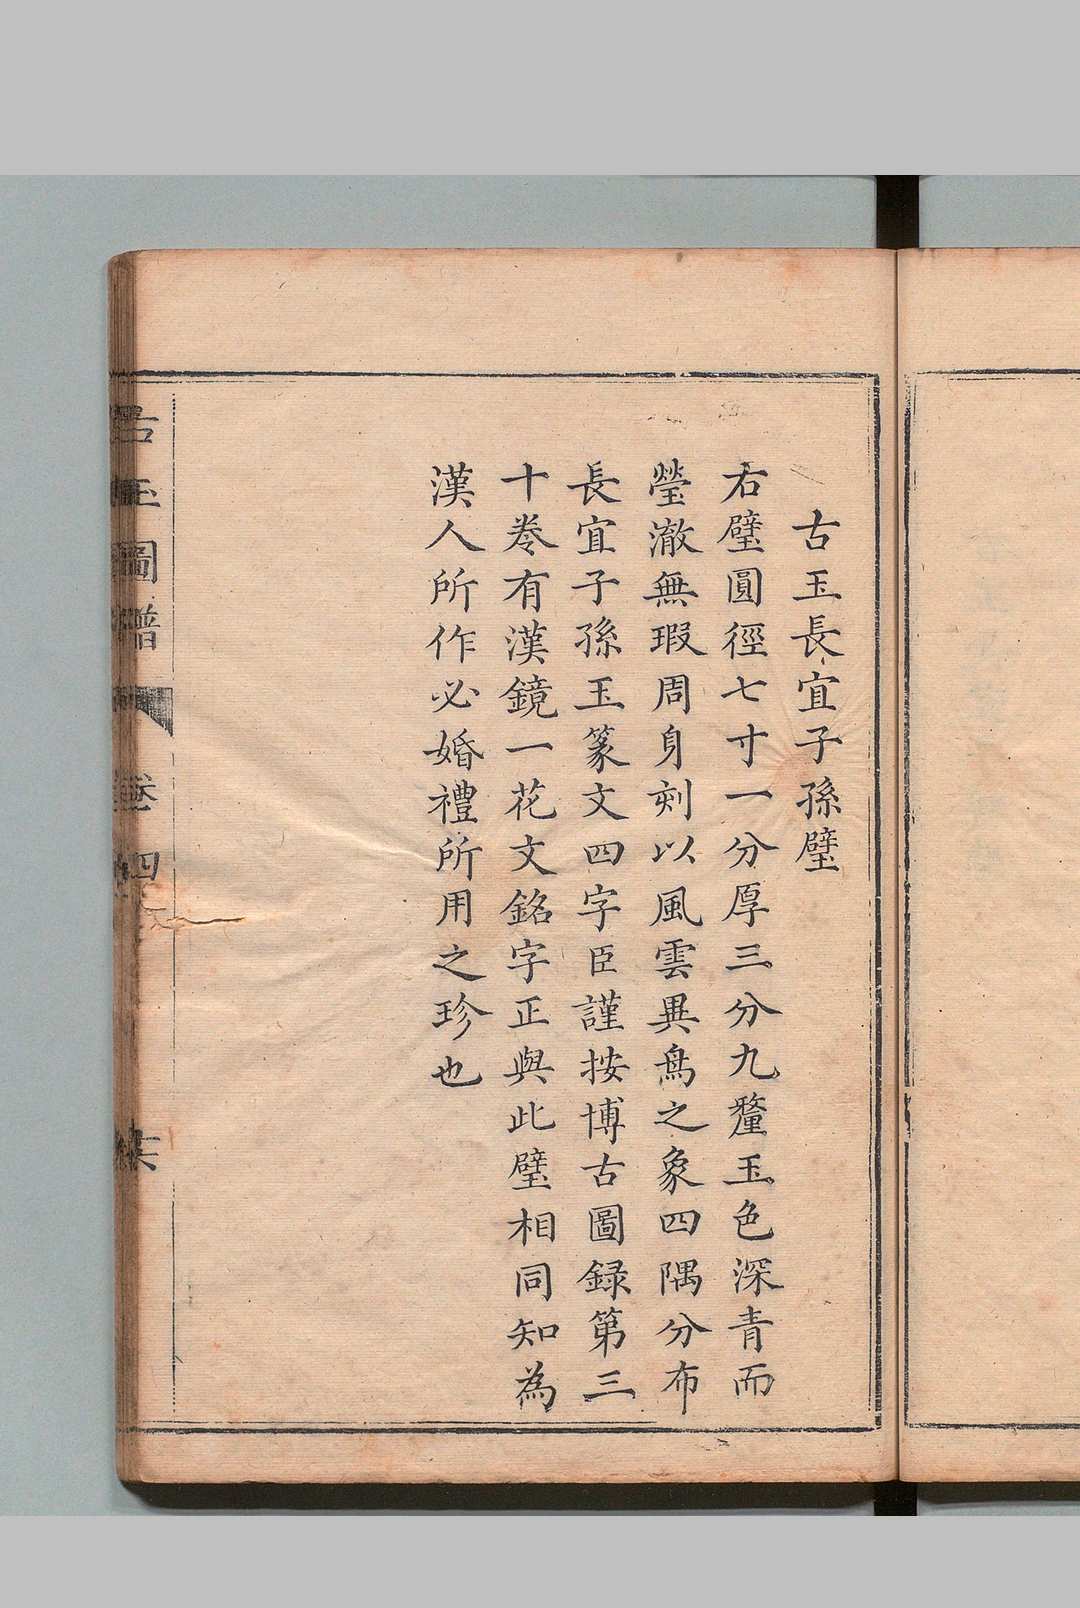 古玉長宜子孫璧
右璧圓徑七寸一分厚三分九釐玉色深青而
瑩澈無瑕周身刻以風雲異鳥之象四隅分布
長宜子孫玉篆文四字臣謹按博古圖録第三
十卷有漢鏡一花文銘字正與此璧相同知為
漢人所作必婚禮所用之珍也
古玉圖譜 卷四